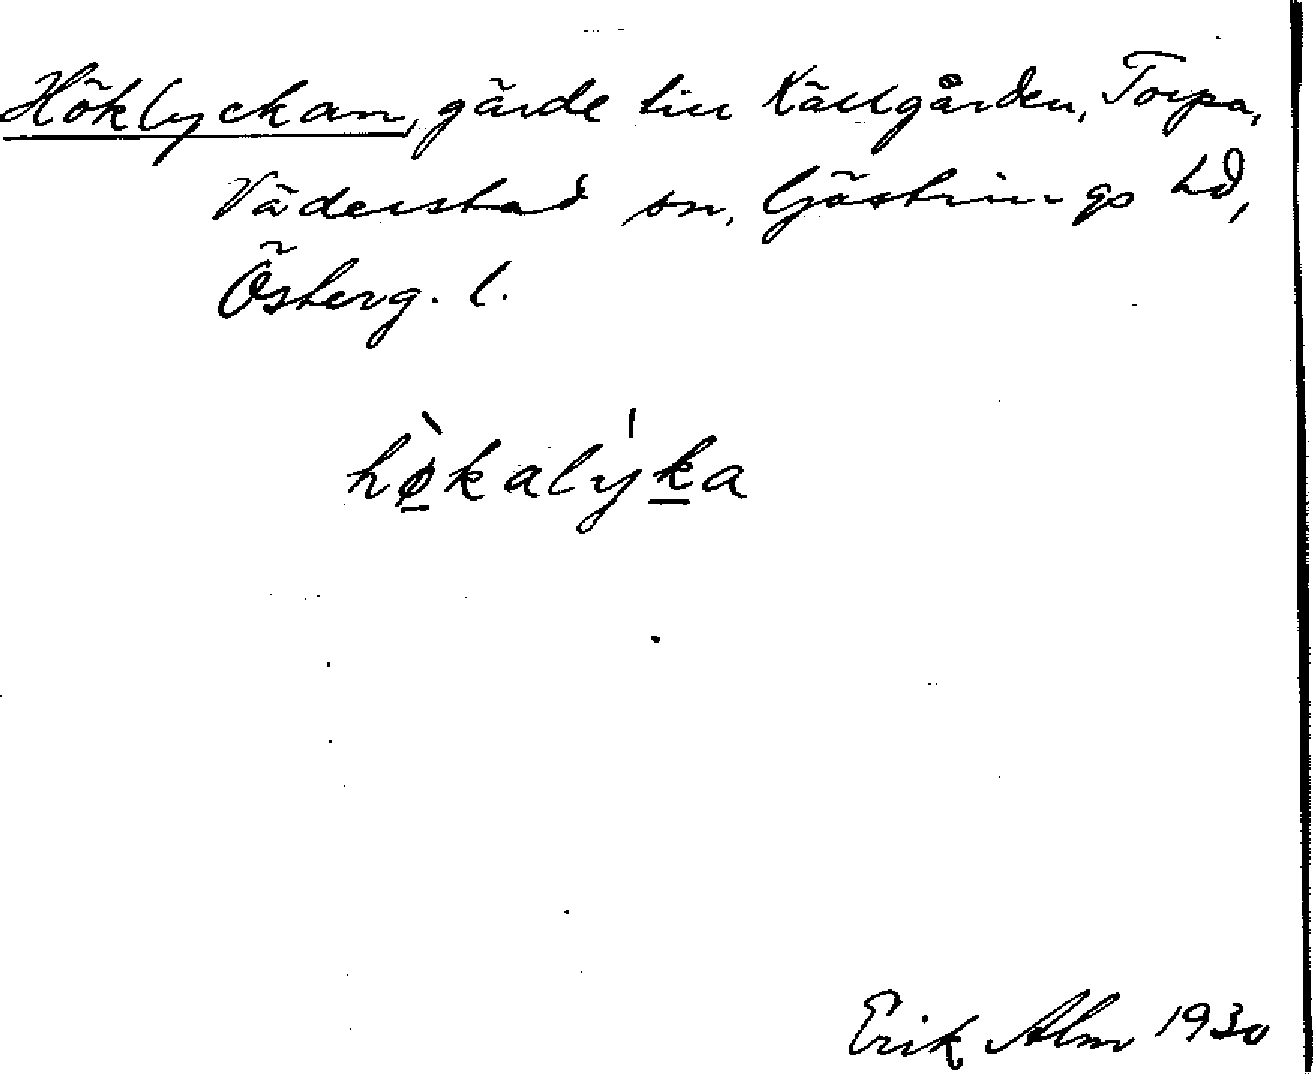 Höklyckan, gärde till Källgården, Torpa,
Väderstad sn, Göstrings hd,
Österg. l.
hø̠̀kalýk̠a
Erik Alm 1930